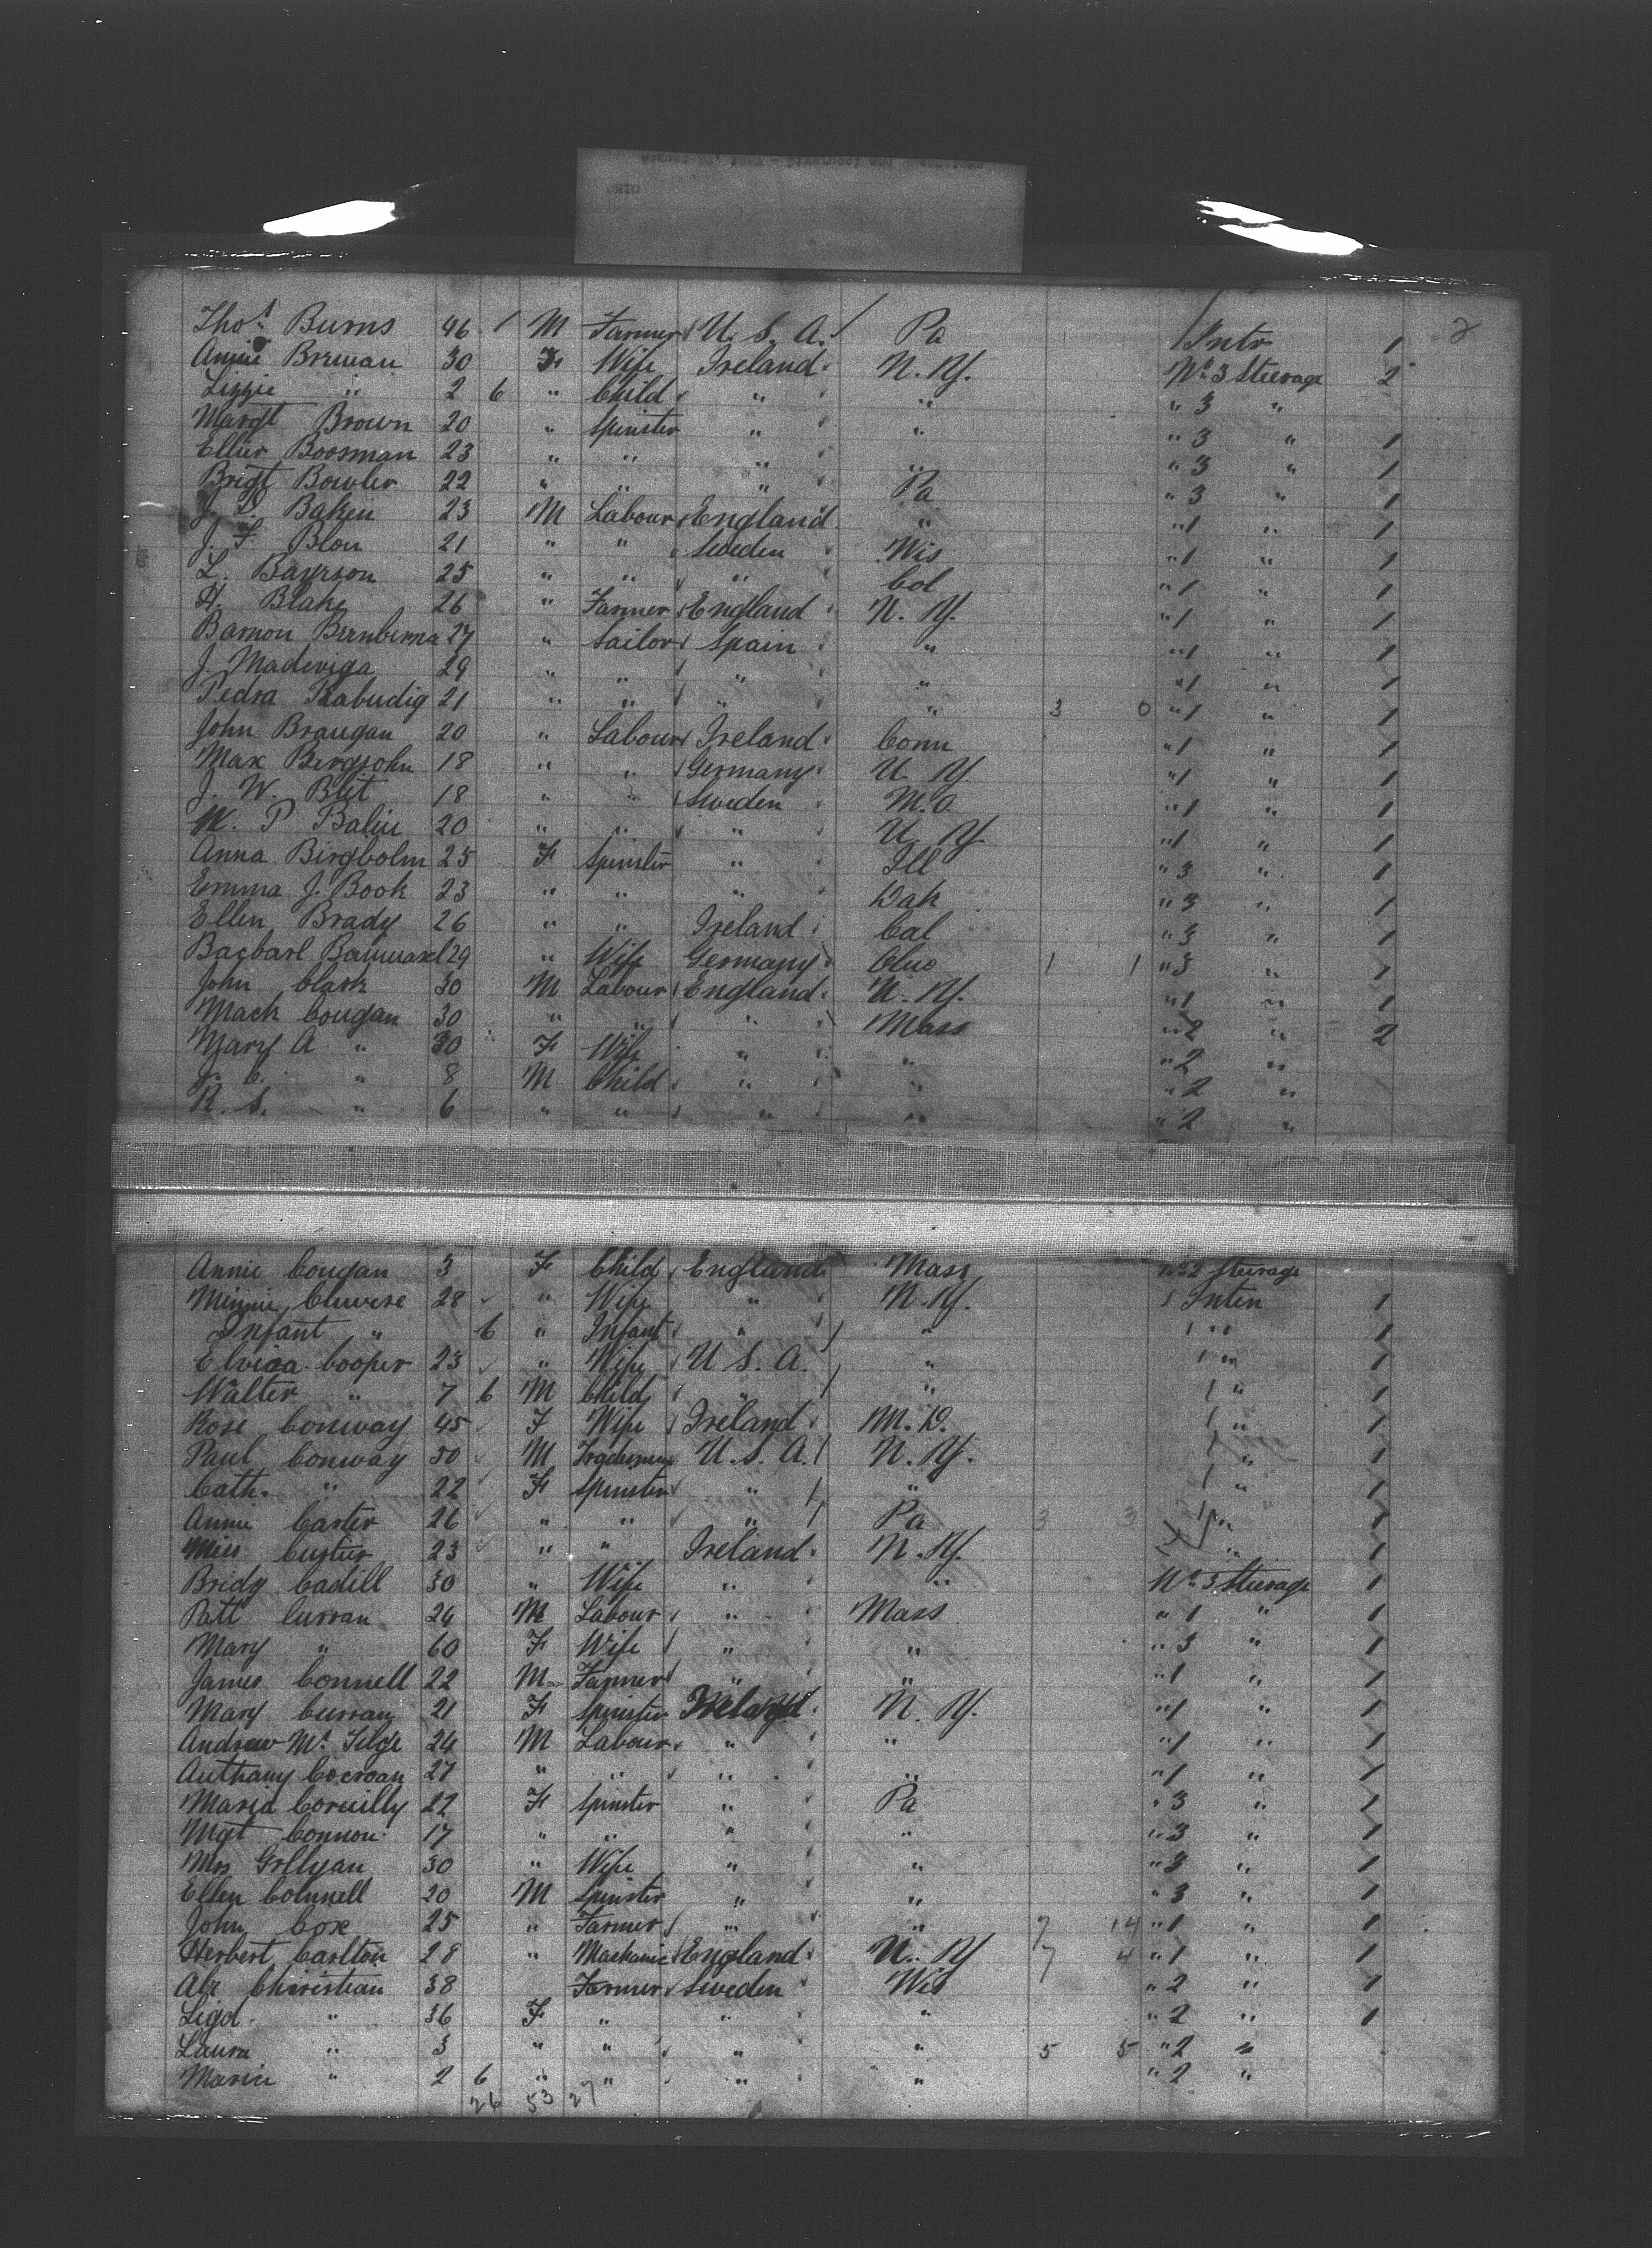 2
Thos. Burns 46 / M Farmer U. S. A. / Pa Intr 1
Annie Brewan 30 F Wife Ireland N. Y. No 3 Steerage 2
Lizzie " 2 6 " Child " " " 3 "
Margt Brown 20 " Spinster " " " 3 " 1
Ellier Boosman 23 " " " " " 3 " 1
Brigt Bowler 22 " " " Pa " 3 " 1
J. Baken 23 M Labour England " " 1 " 1
J. F. Blou 21 " " Sweden Wis " 1 " 1
L. Bayrson 25 " " " Col " 1 " 1
H. Blake 26 " Farmer England N. Y. " 1 " 1
Barnou Bernberna 27 " Sailor Spain " " 1 " 1
J. Madeviga 29 " " " " " 1 " 1
Pedra Kabudig 21 " " " " 3 0 " 1 " 1
John Braugan 20 " Labour Ireland Conn " 1 " 1
Max Bergsohn 18 " " Germany N. Y. " 1 " 1
J. W. Blit 18 " " Sweden M.O. " 1 " 1
M. P Baliu 20 " " " N. Y. " 1 " 1
Anna Birgbolm 25 F Spinster " Ill " 3 " 1
Emma J. Book 23 " " " Dak " 3 " 1
Ellen Brady 26 " " Ireland Cal " 3 " 1
29 " Wife Germany 1 1 " 3 " 1
John Clark 30 M Labour England N. Y. " 1 " 1
Mack Cougan 30 " " " Mass " 2 " 2
Mary A " 30 F Wife " " " 2 "
J. C. " 8 M Child " " " 2 "
R. S. " 6 " " " " " 2 "
Annie Cougan 3 F Child England Mass No 2 Steerage
Minnie 28 " Wife " N. Y. 1 Inten 1
Infant " 6 " Infant " / " 1 " 1
Elviaa Cooper 23 " Wife U. S. A. / " 1 " 1
Walter " 7 6 M Child " / " 1 " 1
Rose Conway 45 F Wife Ireland M. D. 1 " 1
Paul Conway 50 M Tradesman U. S. A. / N. Y. 1 " 1
Cath. " 22 F Spinster " / " 1 " 1
Annie Carter 26 " " " / Pa 3 3 1 " 1
Miss Custur 23 " " Ireland N. Y. " 1
Bridg Cadill 30 " Wife " " No 3 Steerage 1
Patt Curran 24 M Labour " Mass " 1 " 1
Mary " 60 F Wife " " " 3 " 1
James Connell 22 M Farmer " " " 1 " 1
Mary Curran 21 F Spinster Ireland N. Y. " 1 " 1
Andrew Mc. Tilge 24 M Labour " " " 1 " 1
Anthany Cocroan 27 " " " " " 1 " 1
Maria Coruilly 22 F Spinster " Pa " 3 " 1
Mgt Connou 17 " " " " " 3 " 1
Mrs Gollyan 30 " Wife " " " 3 " 1
Ellen Connell 20 M Spinster " " " 3 " 1
John Cox 25 " Farmer " " 7 14 " 1 " 1
Herbert Carlton 28 " Machanic England N. Y. 7 4 " 1 " 1
Alx Chiristian 38 Farmer Sweden Wis " 2 " 1
Ligd " 36 F " " " " 2 " 1
Laura " 3 " " " " 5 5 " 2 "
Marie " 2 6 " " " " " 2 "
26 53 27